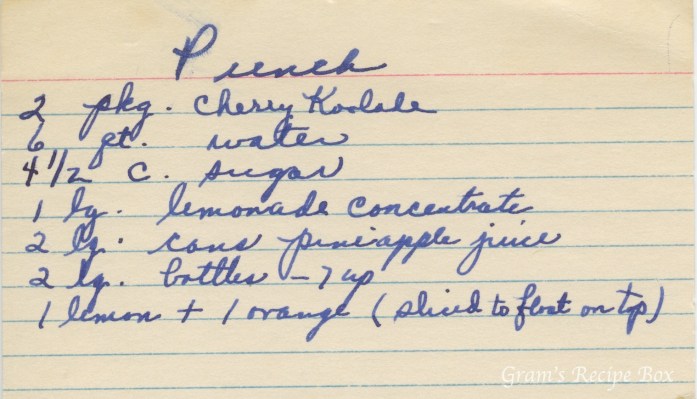 Punch
2 pkg. Cherry Koolade
6 qt. water
4 1/2 c. sugar
1 lg. lemonade concentrate
2 lg. cans pineapple juice
2 lg. bottles - 7 up
1 lemon + 1 orange (sliced to float on top)
Gram's Recipe Box